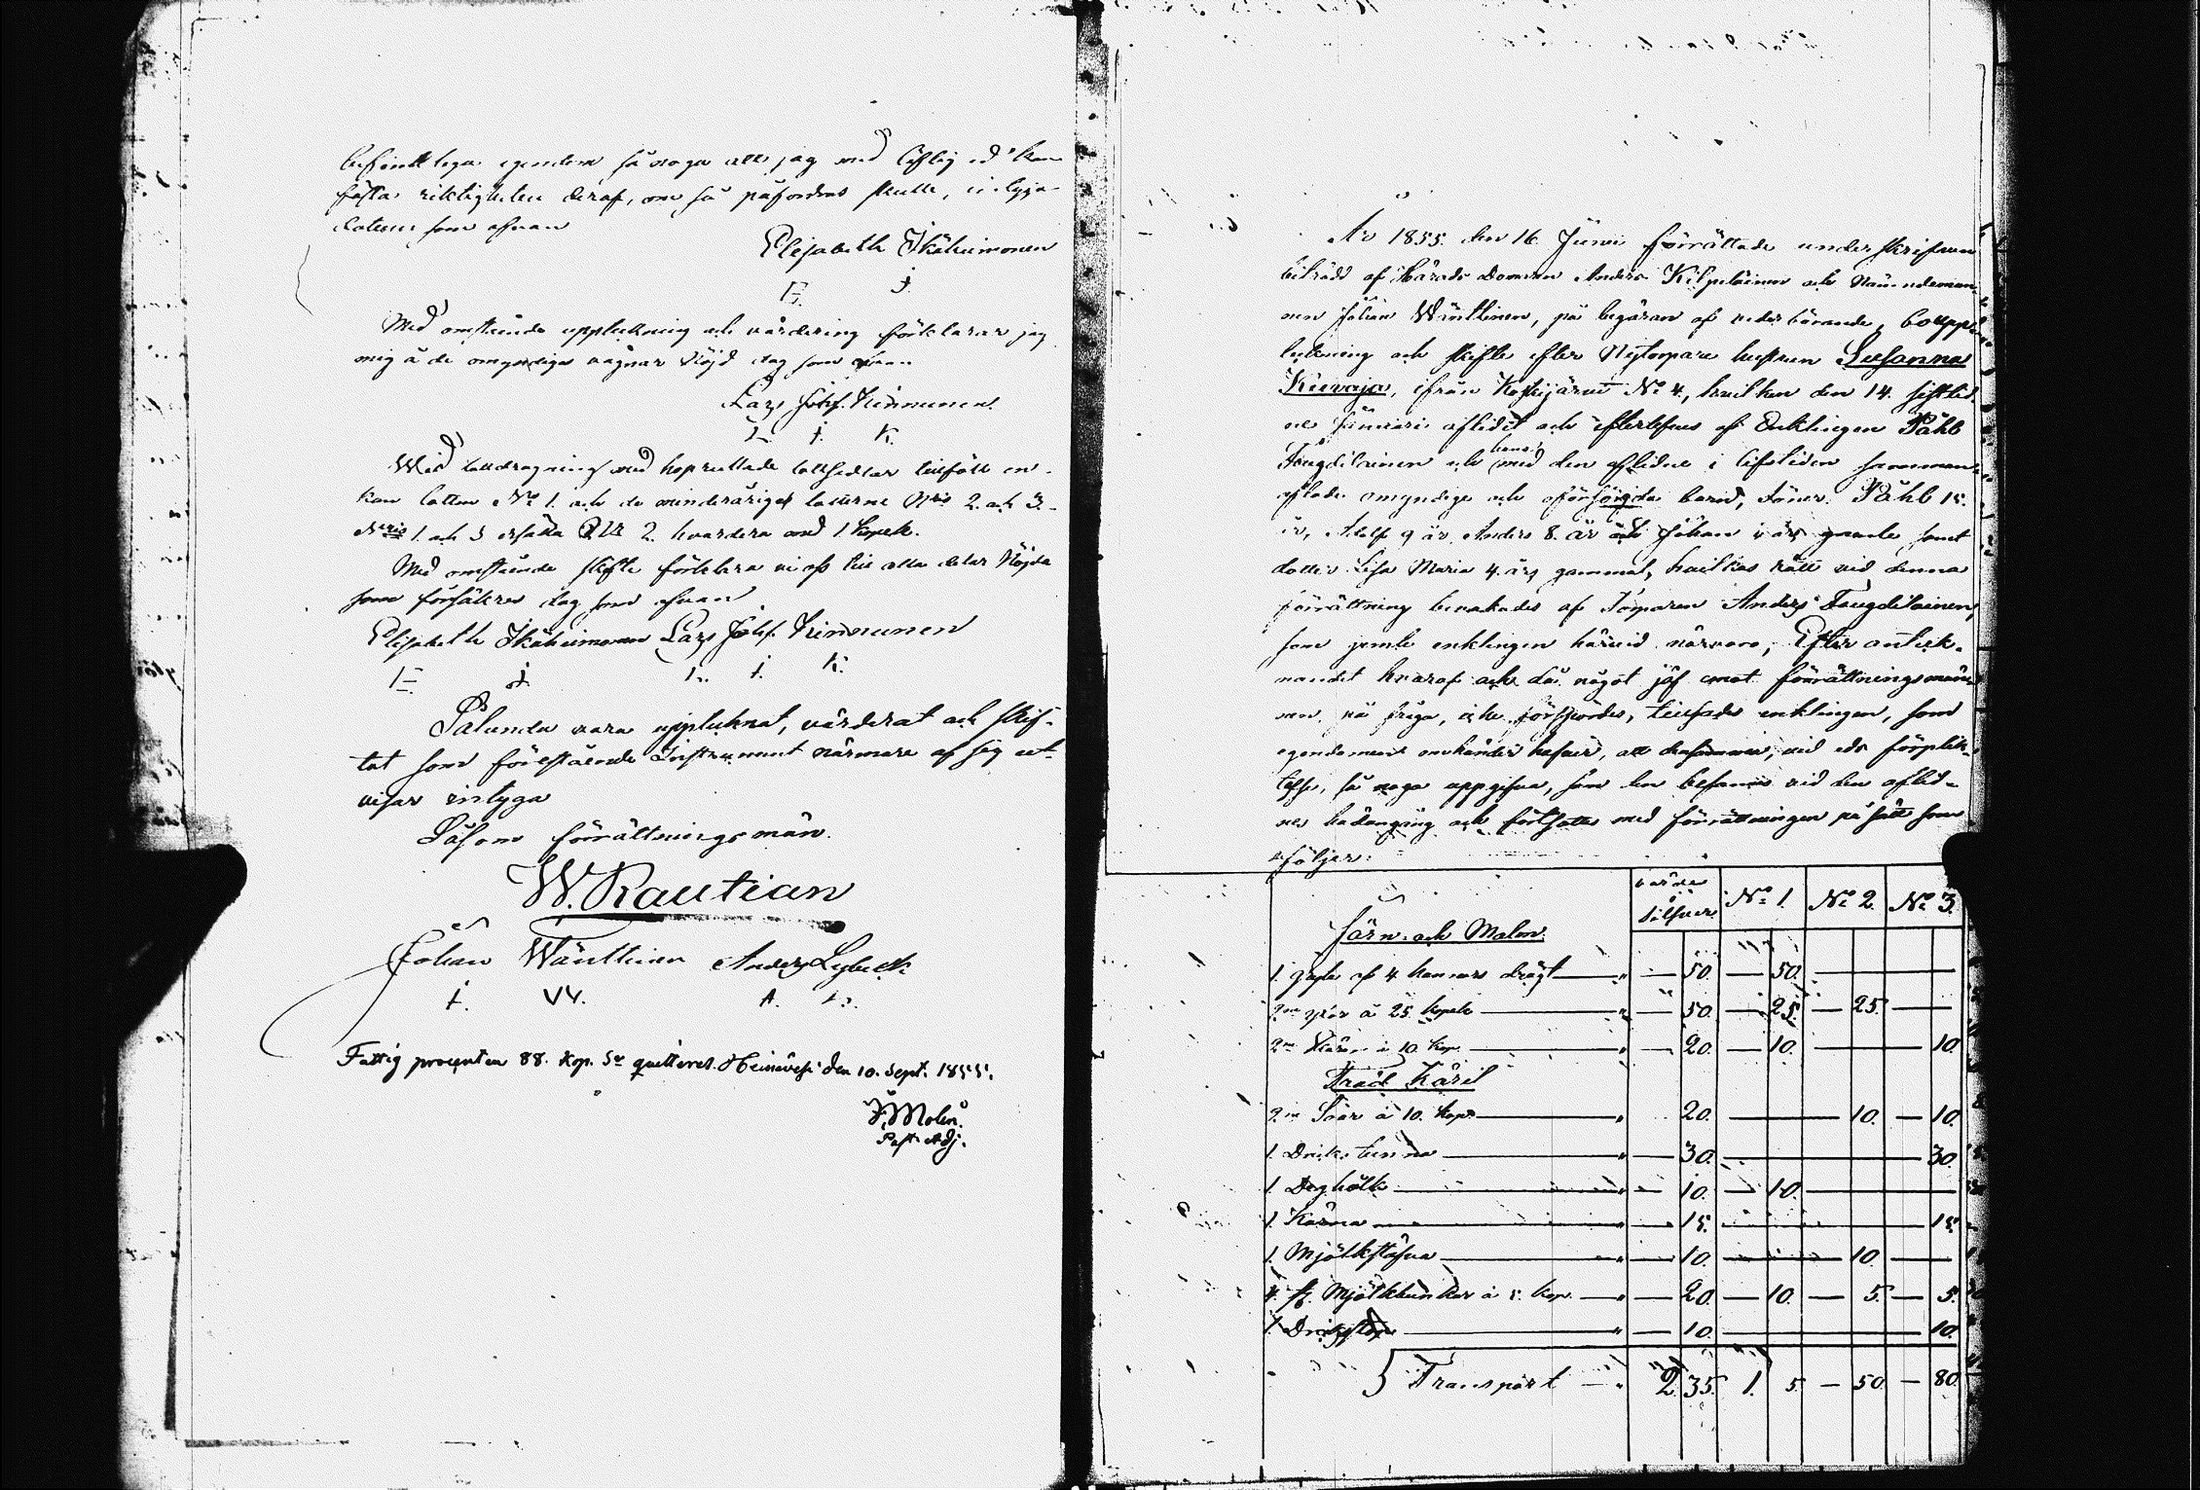 befintteliga egendom så noga att jag med liflig ed kan
fästa riktigheten deraf, om så påfordras skulle, intyga
datum som ofvan
Elisabeth Ikäheimonen
E. I.
Med omstående uppteckning och värdering förklarar jag
mig å de omyndigas vägnar nöjd dag som ofvan
Lars Joh. Kinnunen.
L. J. K.
Wid lottdragning med hoprullade lottsedlar tillföll en-
kan lotten No 1. och de minderåriga lotterne Nris 2. och 3.
Nris 1. och 3 ersätta No 2. hvardera med 1 Kopek.
Med omstående skifte förklara vi oss till alla delar nöjda
som försäkras dag som ofvan
Elisabeth Ikäheimonen Lars Joh. Kinnunen
E. I. L. J. K.
Sålunda vara upptecknat, värderat och skif-
tat som förestående Instrument närmare af sig ut-
visar intyga
Såsom förrättningsmän.
W. Rautian
Johan Wänttinen Anders Lybeck
J. W. A. L.
Fattig procenten 88. kop. Sr quitteras. Heinävesi den 10. Sept. 1855.
Molin.
Past. Adj.
År 1855. den 16 Junii förrättade underskrifven
biträdd af Härads Domaren Anders Kilpeläinen och Nämndeman-
nen Johan Wänttinen, på begäran af vederbörande, boupp-
teckning och skifte efter Nytorpare hustrun Susanna
ifrån Koskijärvi No 4., hvilken den 14. sistled.
ne Januari aflidit och efterlefves af Enklingen Påhl
och hans med den aflidne i lifstiden sammman-
aflade omyndige och oförsörgda barn, söner Påhl 15.
år, Adolf 9 år, Anders 8. år och Johan år gamle samt
dotter Lisa Maria 4. år gammal, hvilkas rätt vid denna
förrättning bevakades af Torparen Anders
som jemte enklingen härvid närvoro; Efter anteck-
nandet hvaraf och då något jäf emot förrättningsmän-
nen, på fråga, icke försports, tillsades enklingen, som
egendomen omhänder hafver, att densamma, vid eds förplik-
telse, så noga uppgifva, som den befanns vid den aflid-
nes hädangång och fortsattes med förrättningen på sätt som
följer:
värde Silfver No 1. No 2. No 3.
Järn och Malm.
1. af 4. kannors drägt — 50. — 50.
2ne yxor à 25. kopek — 50. — 25. — 25.
2ne à 10. kop. — 20. — 10. — 10.
Träd Käril
2ne Såar à 10. kop. 20. — 10. — 10.
1. Dricks tunna — 30. — 30.
1. Deghålk — 10. — 10.
1. Kärna — 15. — 15.
1. Mjölkstäfva — 10. — 10.
4. st. Mjölkbunkar à 5. kop. — 20. — 10. — 5. — 5.
1. — 10. — 10.
Transport — 2. 35. 1. 5. — 50 — 80.